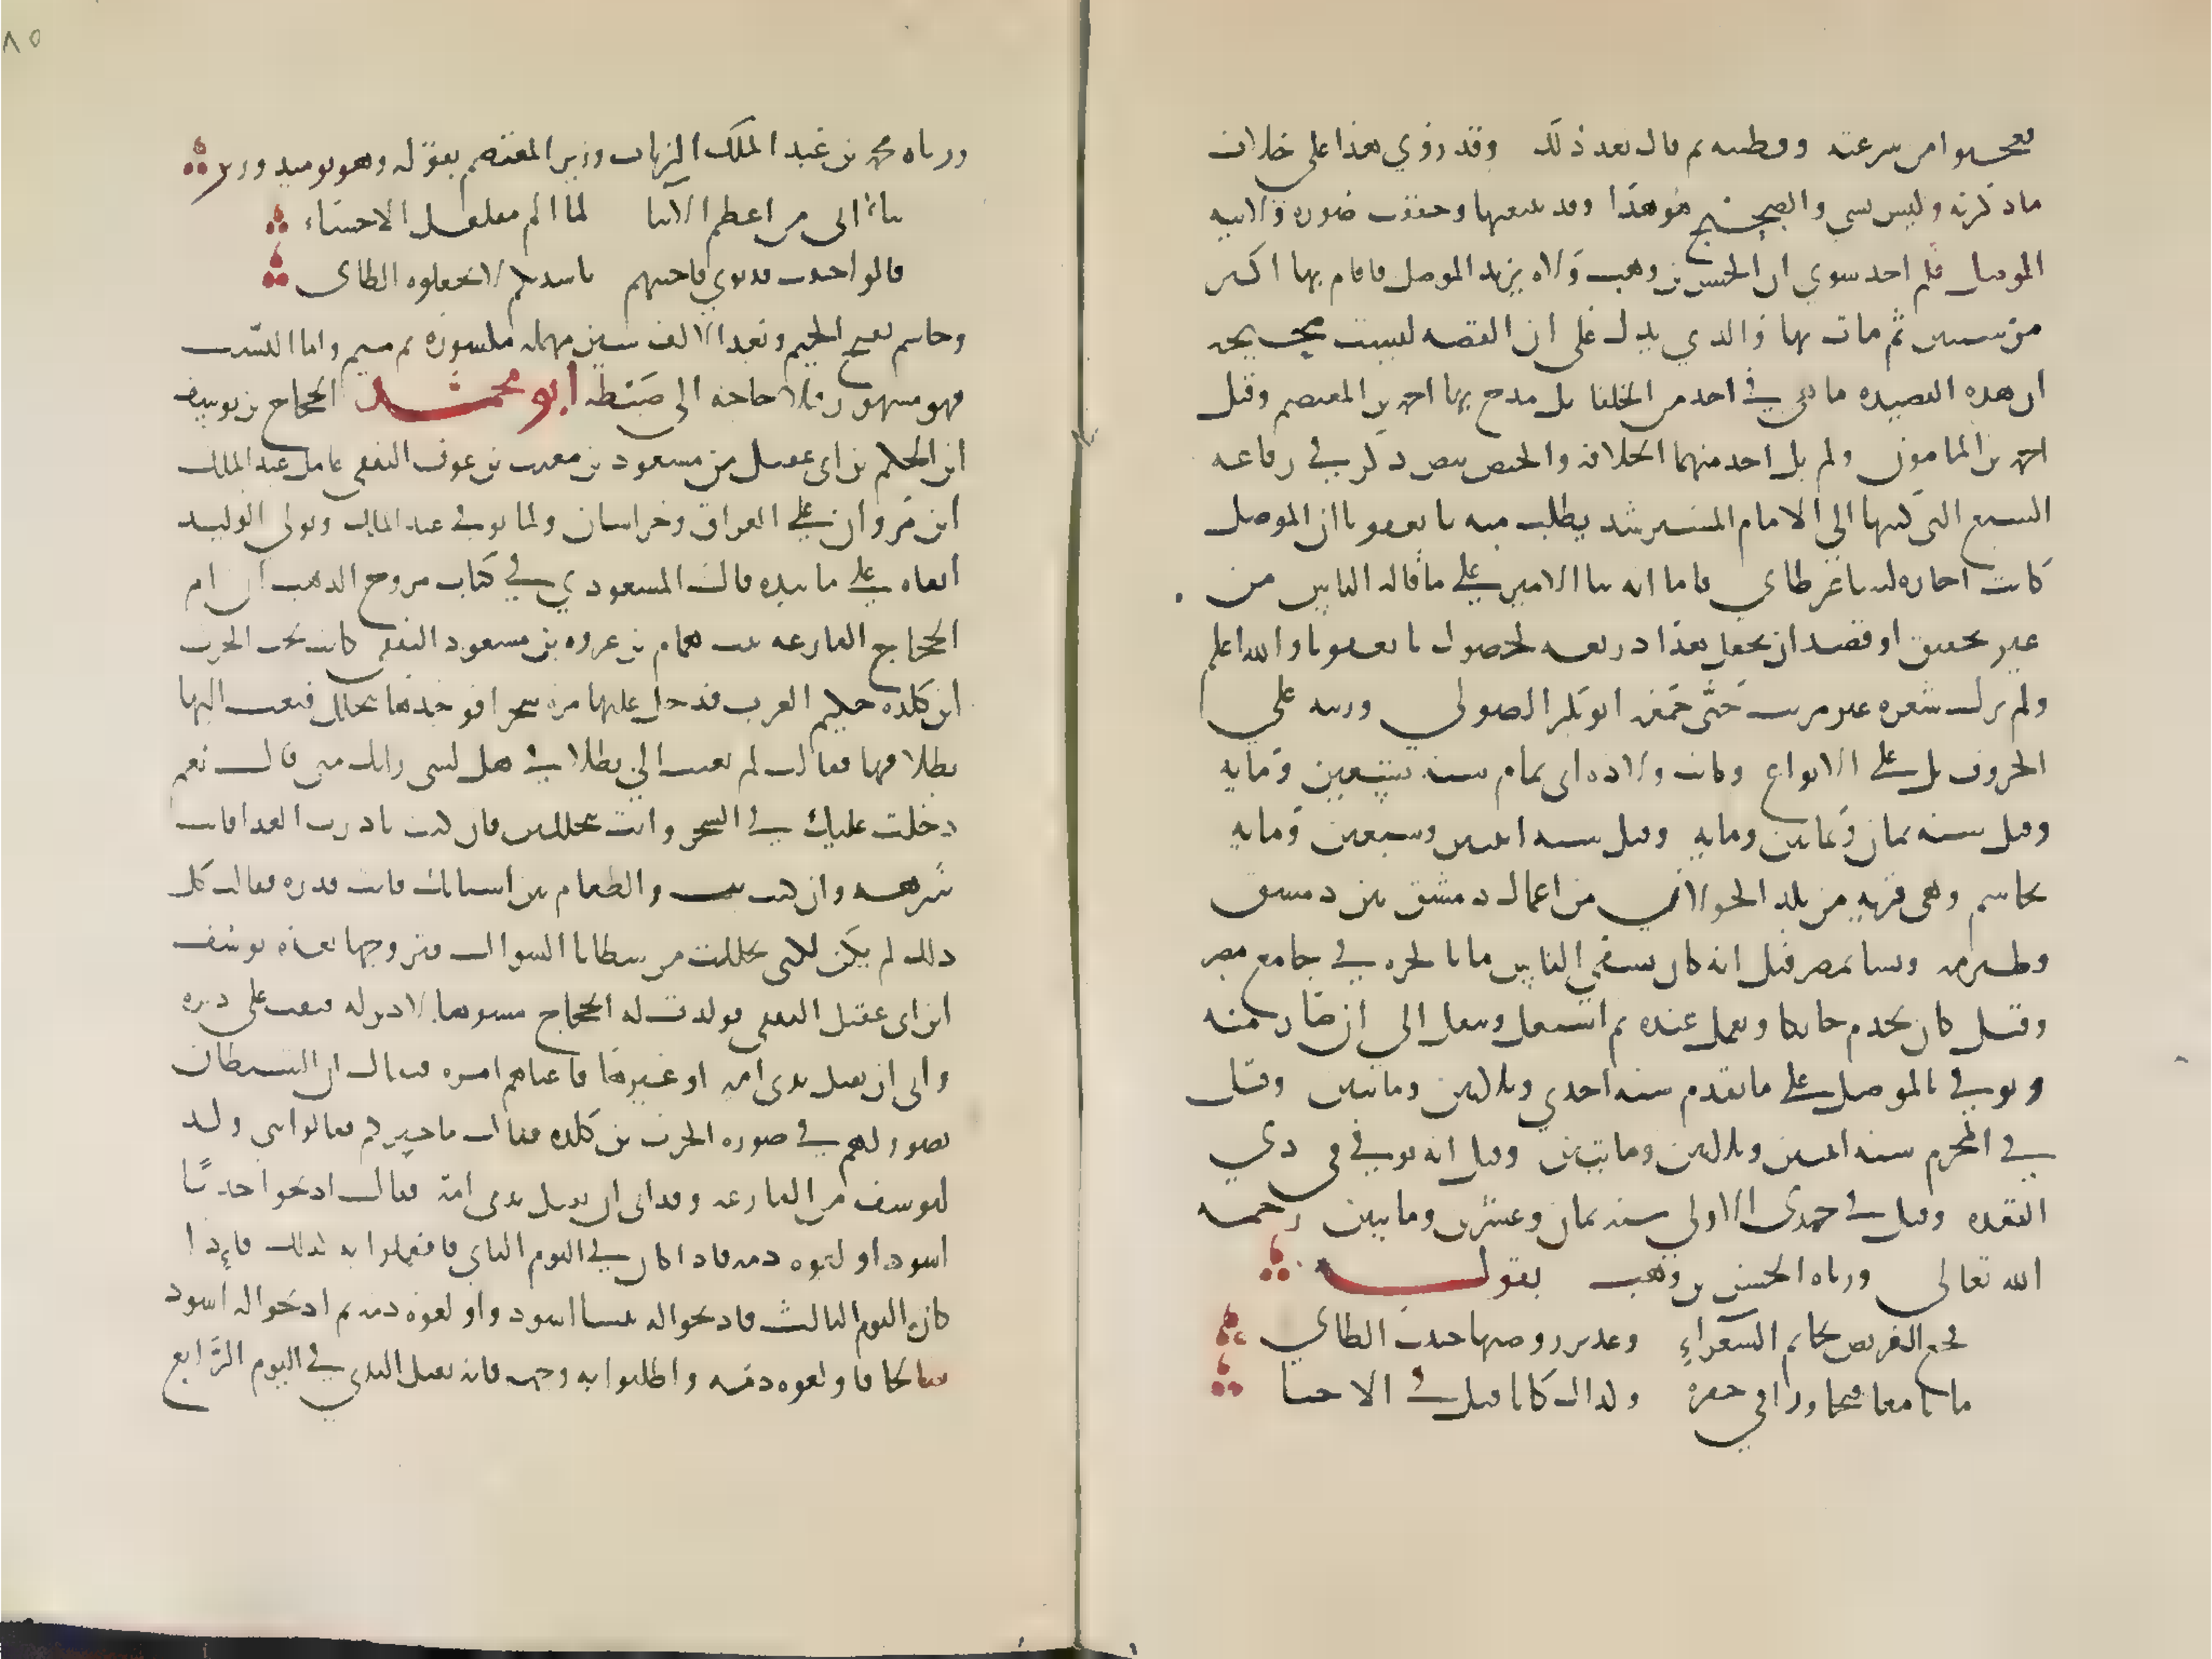 فعجبوا من سرعته وفطنته ثم قال بعد ذلك وقد روي هذا على خلاف
ما ذكرته وليس بشي والصحيح هو هذا وقد تتبعتها وحققت صورة ولايته
الموصل فلم اجد سوى ان الحسن بن وهب ولاه بريد الموصل فاقام بها اكثر
من سنتين ثم مات بها والذي يدل على ان القصه ليست صحيحه
ان هذه القصيده ما هي في احد من الخلفا بل مدح بها احمد بن المعتصم وقيل
احمد بن المامون ولم يل احد منهما الخلافه والحيص بيص ذكر في رقاعه
السبع التي كتبها الى الامام المسترشد يطلب منه بايعقوبا ان الموصل
كانت اجازه لشاعر طاي فاما انه بنا الامير على ما قاله الناس من
غير تحقيق او قصد ان يجعل هذا ذريعه لحصول بايعقوبا والله اعلم
ولم يزل شعره غير مرتب حتى جمعه ابو بكر الصولي ورتبه على
الحروف بل على الانواع وكانت ولادة ابي تمام سنه تسعين ومايه
وقيل سنه ثمان وثمانين ومايه وقيل سنه اثنتين وسبعين ومايه
بجاسم وهي قريه من بلد الجولان من اعمال دمشق بين دمشق
وطبريه ونشا بمصر قيل انه كان يسقي الناس ما بالجره في جامع مصر
وقيل كان يخدم حايكا ويعمل عنده ثم اشتغل وتنقل الى ان صار منه
وتوفي بالموصل على ما تقدم سنه احدي وثلاثين ومايتين وقيل
في المحرم سنه اثنتين وثلاثين ومايتين وقيل انه توفي في ذي
القعده وقيل في جمدى الاولى سنه ثمان وعشرين ومايتين رحمه
الله تعالى ورثاه الحسن بن وهب بقوله
فجع القريض بخاتم الشعراء وغدير روضتها حبيب الطاي
ماتا معا فتجاورا في حفرة وكذاك كانا قبل في الاحيا
ورثاه محمد بن عبد الملك الزيات وزير المعتصم بقوله وهو يوميد وزير
نبأ اتى من اعظم الانبا لما الم مقلقل الاحشاء
قالوا حبيب قد ثوي فاجبتهم ناشدتكم لا تجعلوه الطاى
وجاسم بفتح الجيم وبعد الالف سين مهمله مكسوره ثم ميم واما النسب
فهو مشهور فلا حاجه الى ضبطه ابو محمد الحجاج بن يوسف
ابن الحكم بن ابي عقيل بن مسعود بن معتب بن عوف الثقفي عامل عبد الملك
ابن مروان على العراق وخراسان ولما توفي عبد الملك وتولى الوليد
ابقاه على ما بيده قال المسعودي في كتاب مروج الذهب ان ام
الحجاج الفارعه بنت همام بن عروه بن مسعود الثقفي كانت تحت الحرث
ابن كلده حكيم العرب فدخل عليها مره سحرا فوجدها تخلل فبعث اليها
بطلاقها فقالت لم بعثت الي بطلاقي هل لشي رابك مني قال نعم
دخلت عليك في السحر وانت تخللين فان كنت بادرت الغدا فانت
شرهه وان كنت بت والطعام بين اسنانك فانت قذره فقالت كل
ذلك لم يكن لكني تخللت من شظايا السواك فتزوجها بعده يوسف
ابن ابي عقيل الثقفي فولدت له الحجاج مشوها لا دبر له فنقب على دبره
وابى ان يقبل ثدي امه او غيرها فاعياهم امره فيقال ان الشيطان
تصور لهم في صورة الحرث بن كلده فقال ما خبركم فقالوا بني ولد
ليوسف من الفارعه وقد ابى ان يقبل ثدي امه فقال اذبحوا جديًا
اسود واولغوه دمه فاذا كان في اليوم الثاني فافعلوا به كذلك فاذا
كان اليوم الثالث فاذبحوا له تيسا اسود واولغوه دمه ثم اذبحوا له اسود
سالخا فاولغوه دمه واطلوا به وجهه فانه يقبل الثدي في اليوم الرابع